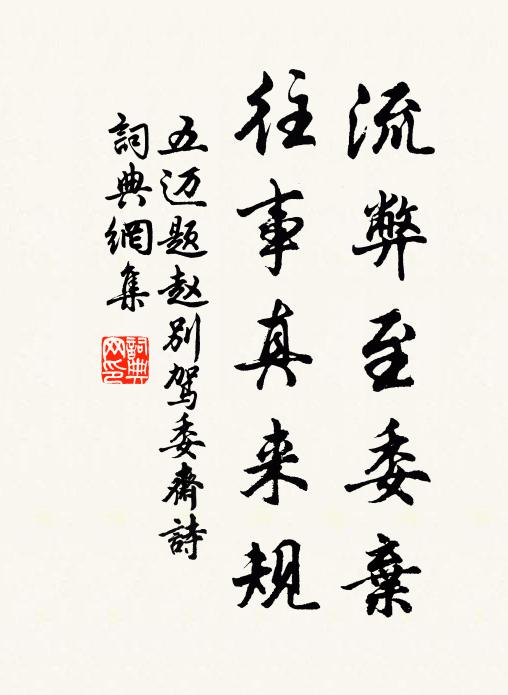 流弊至委棄
往事真来规
五迈题赵别驾委齋詩
詞典網集
詞典网印